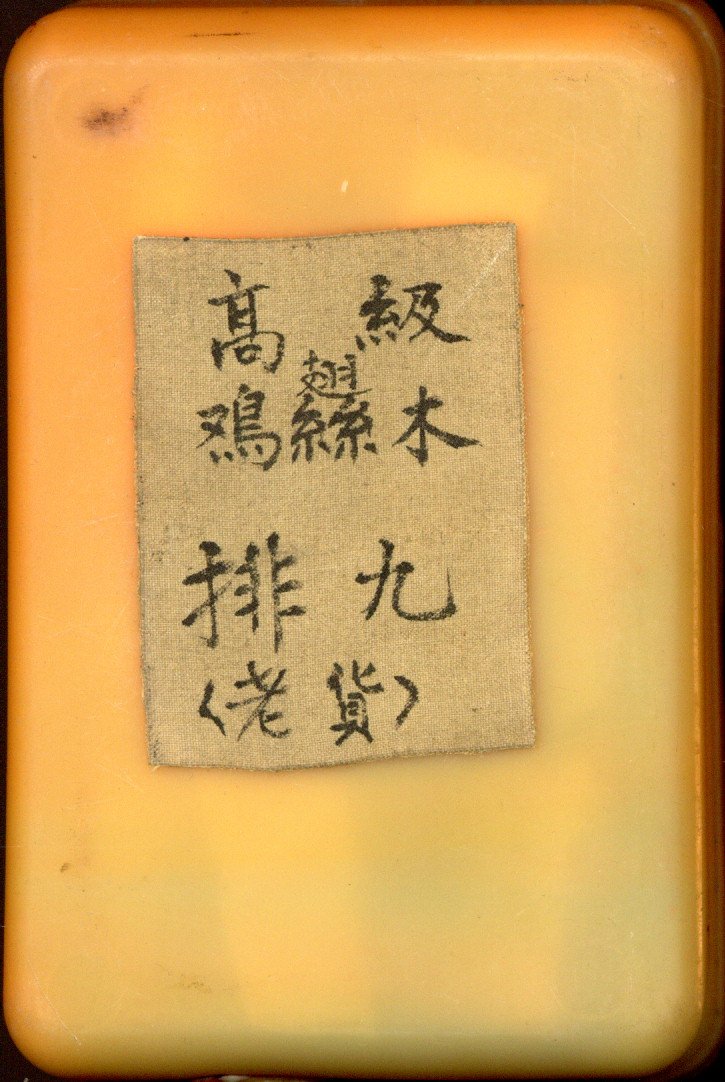 高 級
翅
鳮絲木
排 九
（老 貨）